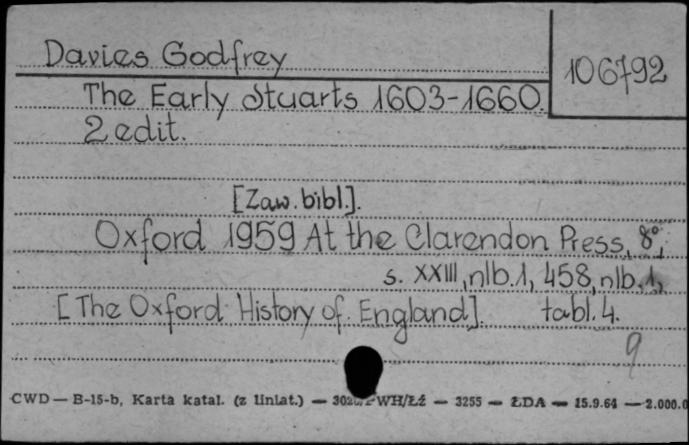 Davies Godfrey
106792
The Early Stuarts 1603-1660.
2 edit.
[Zaw. bibl.].
Oxford 1959 At the Clarendon Press, 8°,
s. XXIII, nlb. 1, 458, nlb. 1,
[The Oxford History of England]. tabl. 4.
9
CWD — B-15-b, Karta katal. (z liniat.) — WH/Łź — 3255 — ŁDA — 15.9.64 — 2.000.0